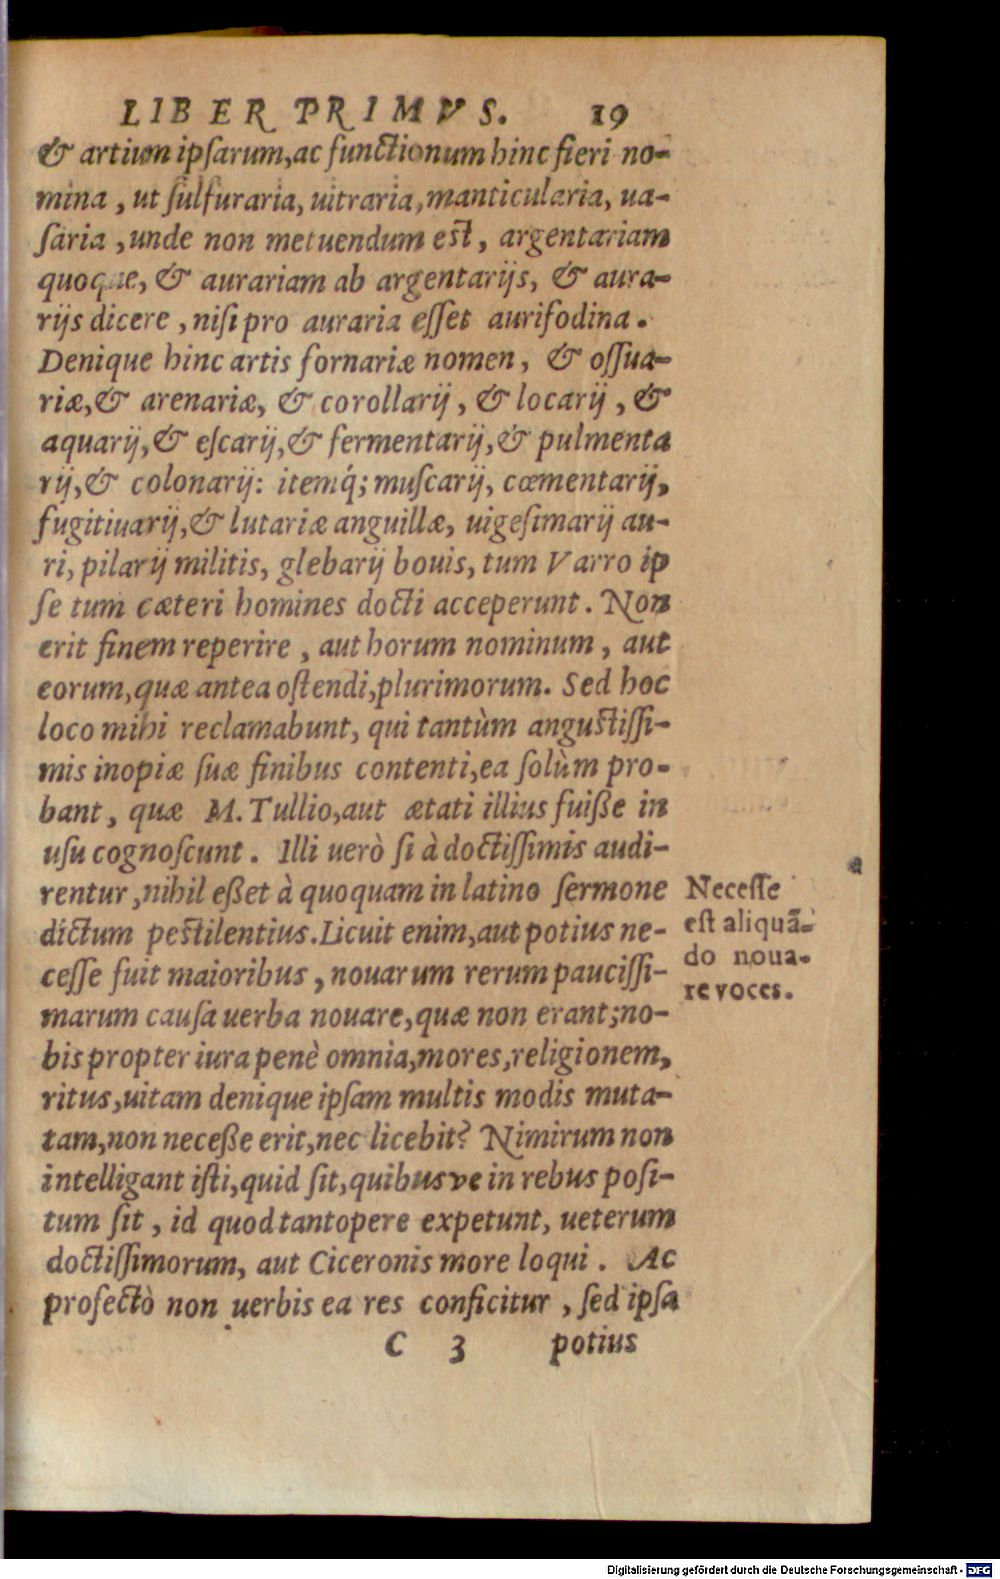 LIBER PRIMVS. 19
& artium ipſarum,ac functionum hinc fieri no-
mina , ut ſulfuraria, uitraria, manticularia, ua-
ſaria ,unde non metuendum eſt , argentariam
quoque, & aurariam ab argentarijs, & aura-
rijs dicere , niſi pro auraria eſſet aurifodina .
Denique hinc artis fornariæ nomen, & oſſua-
riæ,& arenariæ, & corollarij , & locarij , &
aquarij,& eſcarij,& fermentarij,& pulmenta
rij,& colonarij: itemq́; muſcarij, cœmentarij,
fugitiuarij,& lutariæ anguillæ, uigeſimarij au-
ri, pilarij militis, glebarij bouis, tum Varro ip
ſe tum cæteri homines docti acceperunt . Non
erit finem reperire , aut horum nominum , aut
eorum,quæ antea oſtendi,plurimorum. Sed hoc
loco mihi reclamabunt, qui tantùm anguſtiſſi-
mis inopiæ ſuæ finibus contenti,ea ſolùm pro-
bant , quæ M. Tullio,aut ætati illius fuiße in
uſu cognoſcunt . Illi uerò ſi à doctiſſimis audi-
rentur ,nihil eßet à quoquam in latino ſermone
dictum peſtilentius.Licuit enim,aut potius ne-
ceſſe fuit maioribus , nouarum rerum pauciſſi-
marum cauſa uerba nouare,quæ non erant;no-
bis propter iura penè omnia,mores,religionem,
ritus,uitam denique ipſam multis modis muta-
tam,non neceße erit,nec licebit? Nimirum non
intelligant iſti,quid ſit,quibusve in rebus poſi-
tum ſit , id quod tantopere expetunt, ueterum
doctiſſimorum, aut Ciceronis more loqui . Ac
profectò non uerbis ea res conficitur , ſed ipſa
C 3 potius
Neceſſe
eſt aliquã-
do noua-
re voces.
Digitalisierung gefördert durch die Deutsche Forschungsgemeinschaft - DFG